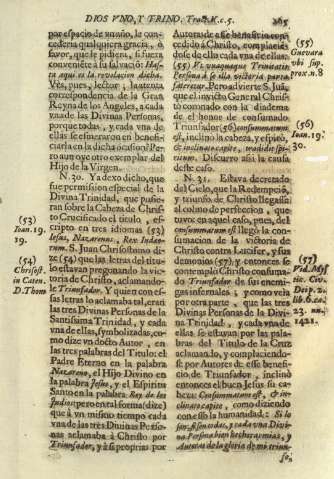 DIOS VNO, Y TRINO. Trat. K. c. 5. 265
por espacio de vn año, le con-
cederia qualquiera gracia, ò
favor, que le pidiera, si fuera
conveniente à su salvaciò: Has-
ta aqui es la revelacion dicha.
Vès, pues, lector, la atenta
correspondencia de la Gran
Reyna de los Angeles, à cada
vna de las Divinas Personas,
porque todas, y cada vna de
ellas se esmeraron en benefi-
ciarla en la dicha ocasion? Pe-
ro aun oye otro exemplar del
Hijo de la Virgen.
N. 30. Ya dexo dicho, que
fue permission especial de la
Divina Trinidad, que pusie-
ran sobre la Cabeza de Chris-
to Crucificado el titulo, es-
cripto en tres idiomas (53)
Iesus, Nazarenus, Rex Iudæo-
rum. S. Juan Chrisostomo di-
ze (54) que las letras del titu-
lo estavan pregonando la vic-
toria de Christo, aclamando-
le Triunfador. Y quien con es-
sas letras lo aclamaba tal, eran
las tres Divinas Personas de la
Santissima Trinidad, y cada
vna de ellas, symbolizadas, co-
mo dize vn docto Autor, en
las tres palabras del Titulo: el
Padre Eterno en la palabra
Nazareno, el Hijo Divino en
la palabra Jesus, y el Espiritu
Santo en la palabra Rey de los
Iudios: pero en tal forma (dize)
que à vn mismo tiempo cada
vna de las tres Divinas Perso-
nas aclamaba à Christo por
Triunfador, y à sí proprias por
(53)
Ioan. 19.
19.
(54)
Chrisost.
in Caten.
D. Thom
Autoras de esse beneficio con-
cedido à Christo, complacien-
dose de ella cada vna de ellas.
(55) Et vnaquæque Trinitatis
Persona à se illa victoria parta
fateretur. Pero advierte S. Juã,
que el invicto General Chris-
to coronado con la diadema
de el honor de consumado
Triunfador (56) consummatum
est, inclinò la cabeza, y espirò,
& inclinato capite, tradidit spi-
ritum. Discurro assi la causa
deste caso.
N. 31. Estava decretado
del Cielo, que la Redempciõ,
y triunfo de Christo llegasse
al colmo de perfeccion, que
tuvo; en aquel caso, pues, del
consummatum est llegò la con-
sumacion de la victoria de
Christo contra Lucifer, y sus
demonios (57) y entonces se
contemplò Christo consuma-
do Triunfador de sus enemi-
gos infernales, y como veìa
por otra parte, que las tres
Divinas Personas de la Divi-
na Trinidad, y cada vna de
ellas se estavan por las pala-
bras del Titulo de la Cruz
aclamando, y complaciendo-
se por Autores de esse benefi-
cio de Triunfador, inclinò
entonces el buen Jesus su ca-
beza: Consummatum est, & in-
clinato capite, como diziendo
con esso la humanidad: Si lo
son, si son todas, y cada vna Divi-
na Persona bienhechoras mias, y
Autoras de la gloria de mi triun-
fo,
(55)
Guevara
vbi sup.
prox. n. 8
(56)
Ioan. 19.
30.
(57)
Vid. Mys
tic. Civ.
Dei p. 2.
lib. 6. ca.
23. nu.
1421.